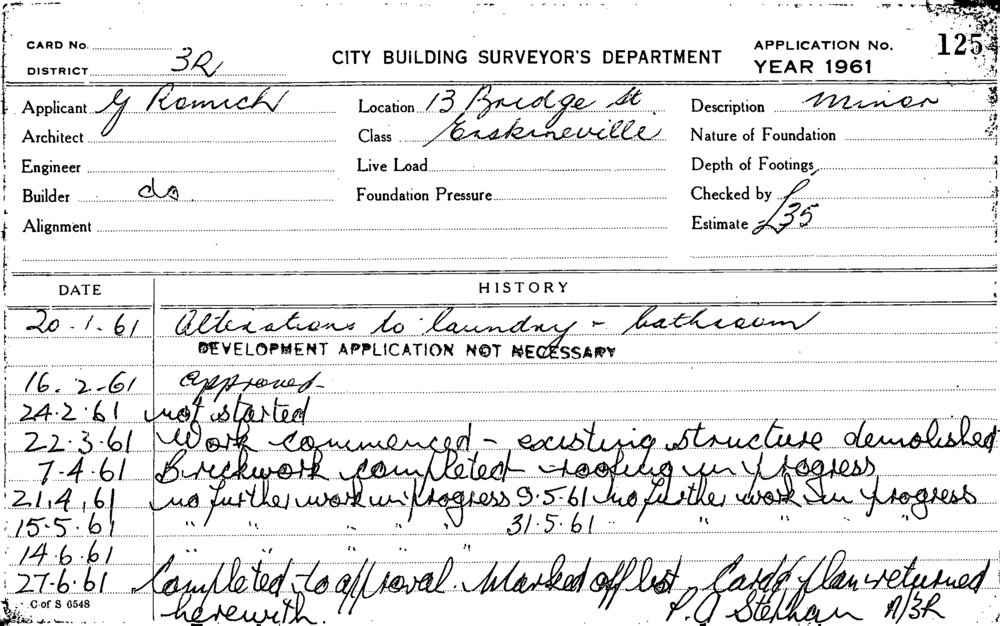 CARD No. CITY BUILDING SURVEYOR'S DEPARTMENT APPLICATION No. 125
DISTRICT 3R YEAR 1961
Applicant G Romich Location 13 Bridge St Description Minor
Architect Class Erskineville Nature of Foundation
Engineer Live Load Depth of Footings
Builder do Foundation Pressure Checked by
Alignment Estimate £35
DATE HISTORY
20.1.61 Alterations to laundry - bathroom
DEVELOPMENT APPLICATION NOT NECESSARY
16.2.61 approved
24.2.61 not started
22.3.61 Work commenced - existing structure demolished
7.4.61 Brickwork completed - roofing in progress
21.4.61 no further work in progress 9.5.61 no further work in progress
15.5.61 " " " " " 31.5.61 " " " "
14.6.61 " " " " "
27.6.61 Completed to approval. Marked off list Card & plan returned
herewith. P. A Stephan A/3R
C of S 6548